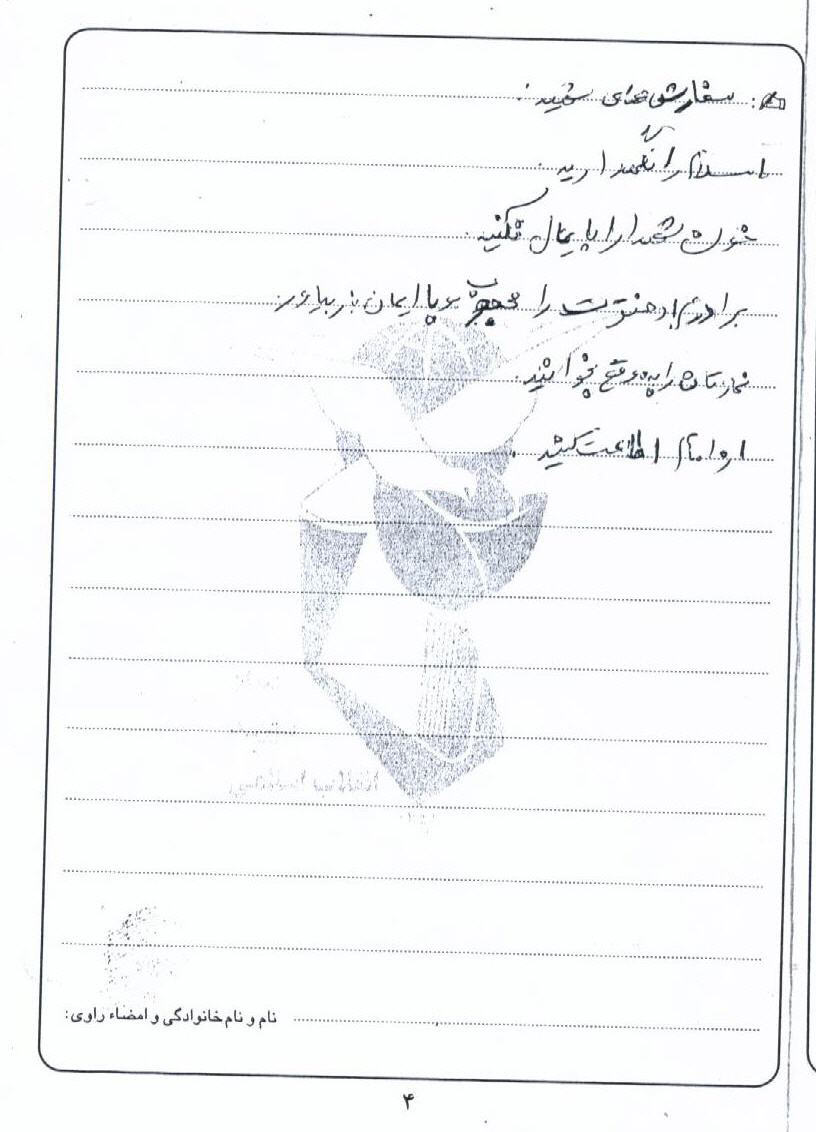 سفارش‌های شهید:
اسلام را نگهدارید.
خون شهدا را پایمال نکنید.
برادرم دخترت را محجب و با ایمان بار بیاور.
نمازتان را به موقع بخوانید.
از امام اطاعت کنید.
نام و نام خانوادگی و امضاء راوی:
۴